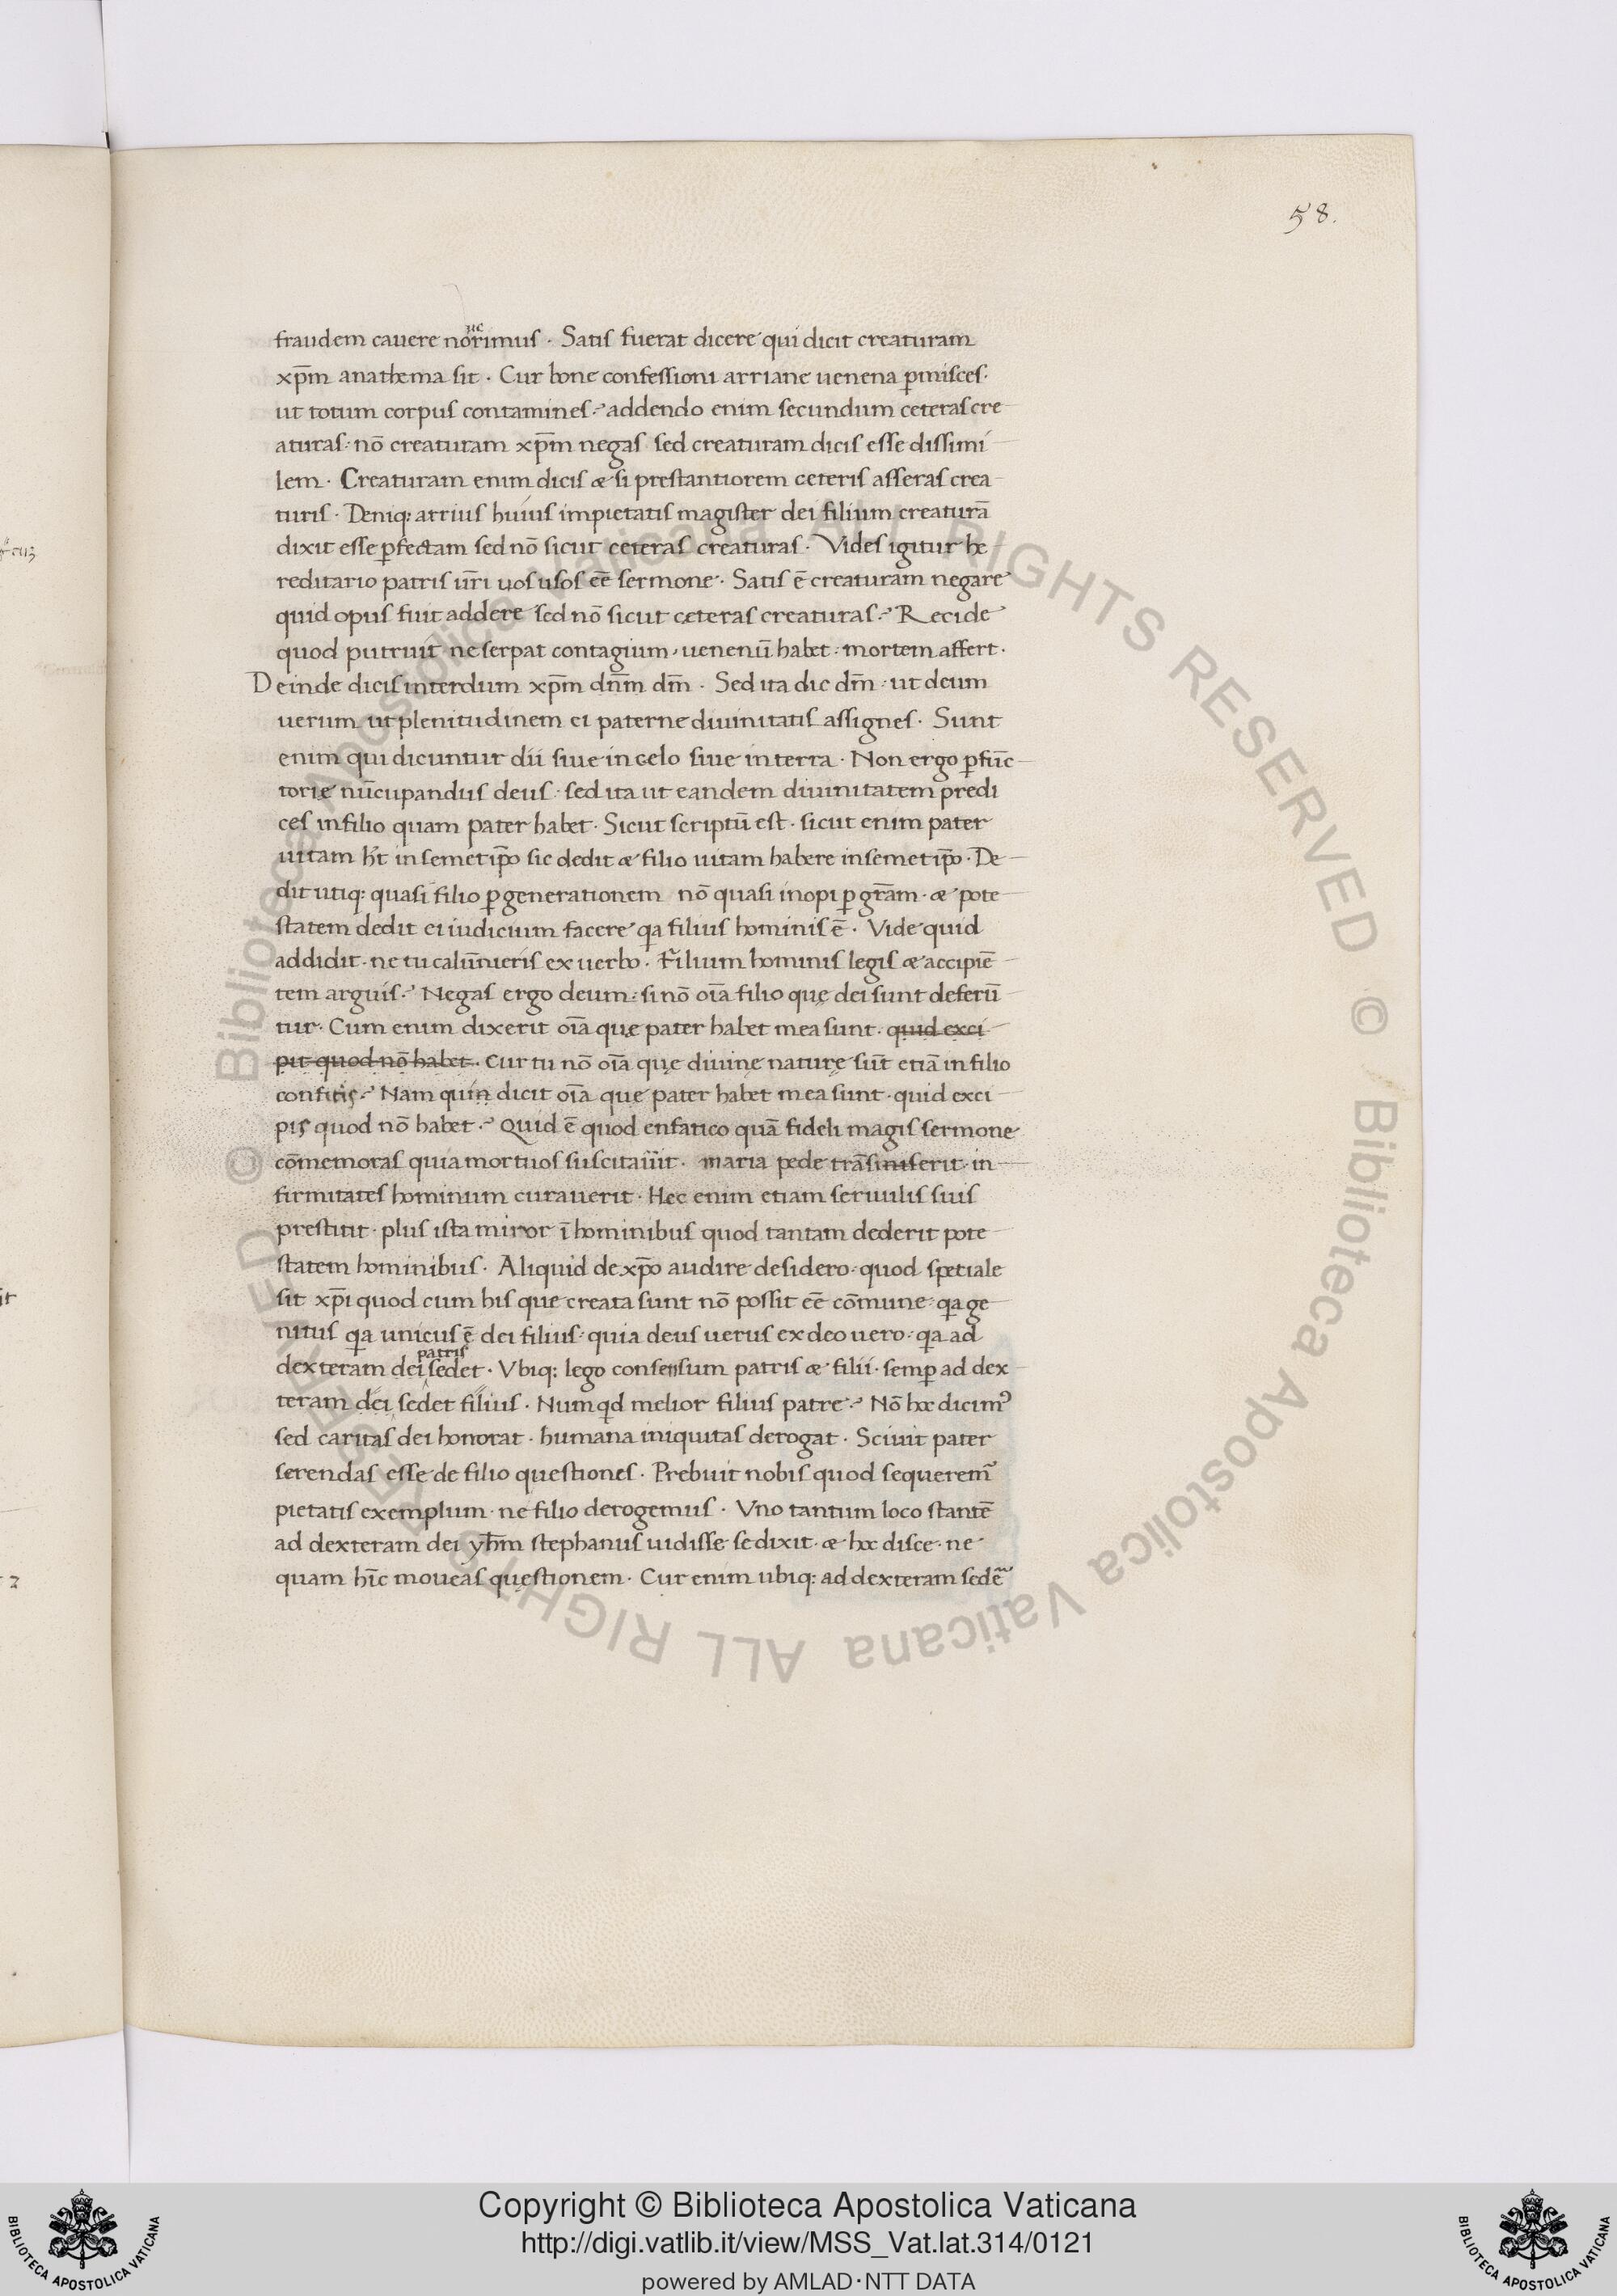 58.
fraudem cauere norimus · Satis fuerat dicere qui dicit creaturam
xp̄m anathema sit · Cur bone confessioni arriane uenena ꝑmisces·
ut totum corpus contamines·? addendo enim secundum ceteras cre
aturas· nō creaturam xp̄m negas sed creaturam dicis esse dissimi
lem · Creaturam enim dicis æ si prestantiorem ceteris asseras crea
turis · Deniq: arrius huius impietatis magister dei filium creaturā
dixit esse ꝑfectam sed nō sicut ceteras creaturas · Vides igitur he
reditario patris ur̄i uos usos eē sermone · Satis ē creaturam negare
quid opus fuit addere sed nō sicut ceteras creaturas·? Recide
quod putruit ne serpat contagium · uenenū habet · mortem affert ·
Deinde dicis interdum xp̄m dn̄m dm̄ · Sed ita dic dm̄ · ut deum
uerum ut plenitudinem ei paterne diuinitatis assignes · Sunt
enim qui dicuntur dii siue in celo siue in terra · Non ergo ꝑfūc
torie nūcupandus deus · sed ita ut eandem diuinitatem predi
ces in filio quam pater habet · Sicut scriptū est · sicut enim pater
uitam ht̄ in semetip̄o sic dedit æ filio uitam habere in semetip̄o · De
dit utiq: quasi filio ꝑ generationem nō quasi inopi ꝑ grām · æ pote
statem dedit ei iudicium facere qa filius hominis ē · Vide quid
addidit · ne tu calūnieris ex uerbo · Filium hominis legis æ accipiē
tem arguis·? Negas ergo deum · si nō oīa filio que dei sunt deferū
tur · Cum enim dixerit oīa que pater habet mea sunt · quid exci
pit quod nō habet · Cur tu nō oīa que diuine nature sūt etiā in filio
confitis·? Nam quin dicit oīa que pater habet mea sunt · quid exci
pis quod nō habet ·? Quid ē quod enfatico quā fideli magis sermone
cōmemoras quia mortuos suscitauit · maria pede trāsmiserit · in
firmitates hominum curauerit · Hec enim etiam seruulis suis
prestitit · plus ista miror ī hominibus quod tantam dederit pote
statem hominibus · Aliquid de xp̄o audire desidero · quod spetiale
sit xp̄i quod cum his que creata sunt nō possit eē cōmune · qa ge
nitus qa unicus ē dei filius · quia deus uerus ex deo uero · qa ad
patris
dexteram dei sedet · Vbiq: lego consensum patris æ filii · semꝑ ad dex
teram dei sedet filius · Numqd melior filius patre·? Nō hoc dicimꝰ
sed caritas dei honorat · humana iniquitas derogat · Sciuit pater
serendas esse de filio questiones · Prebuit nobis quod sequerem᷑
pietatis exemplum · ne filio derogemus · Vno tantum loco stantē
ad dexteram dei yhm̄ stephanus uidisse se dixit · æ hoc disce · ne
quam hīc moueas questionem · Cur enim ubiq: ad dexteram sedē
© Biblioteca Apostolica Vaticana ALL RIGHTS RESERVED © Biblioteca Apostolica Vaticana ALL RIGHTS RESERVED
Copyright © Biblioteca Apostolica Vaticana
http://digi.vatlib.it/view/MSS_Vat.lat.314/0121
powered by AMLAD·NTT DATA
BIBLIOTECA APOSTOLICA VATICANA
BIBLIOTECA APOSTOLICA VATICANA